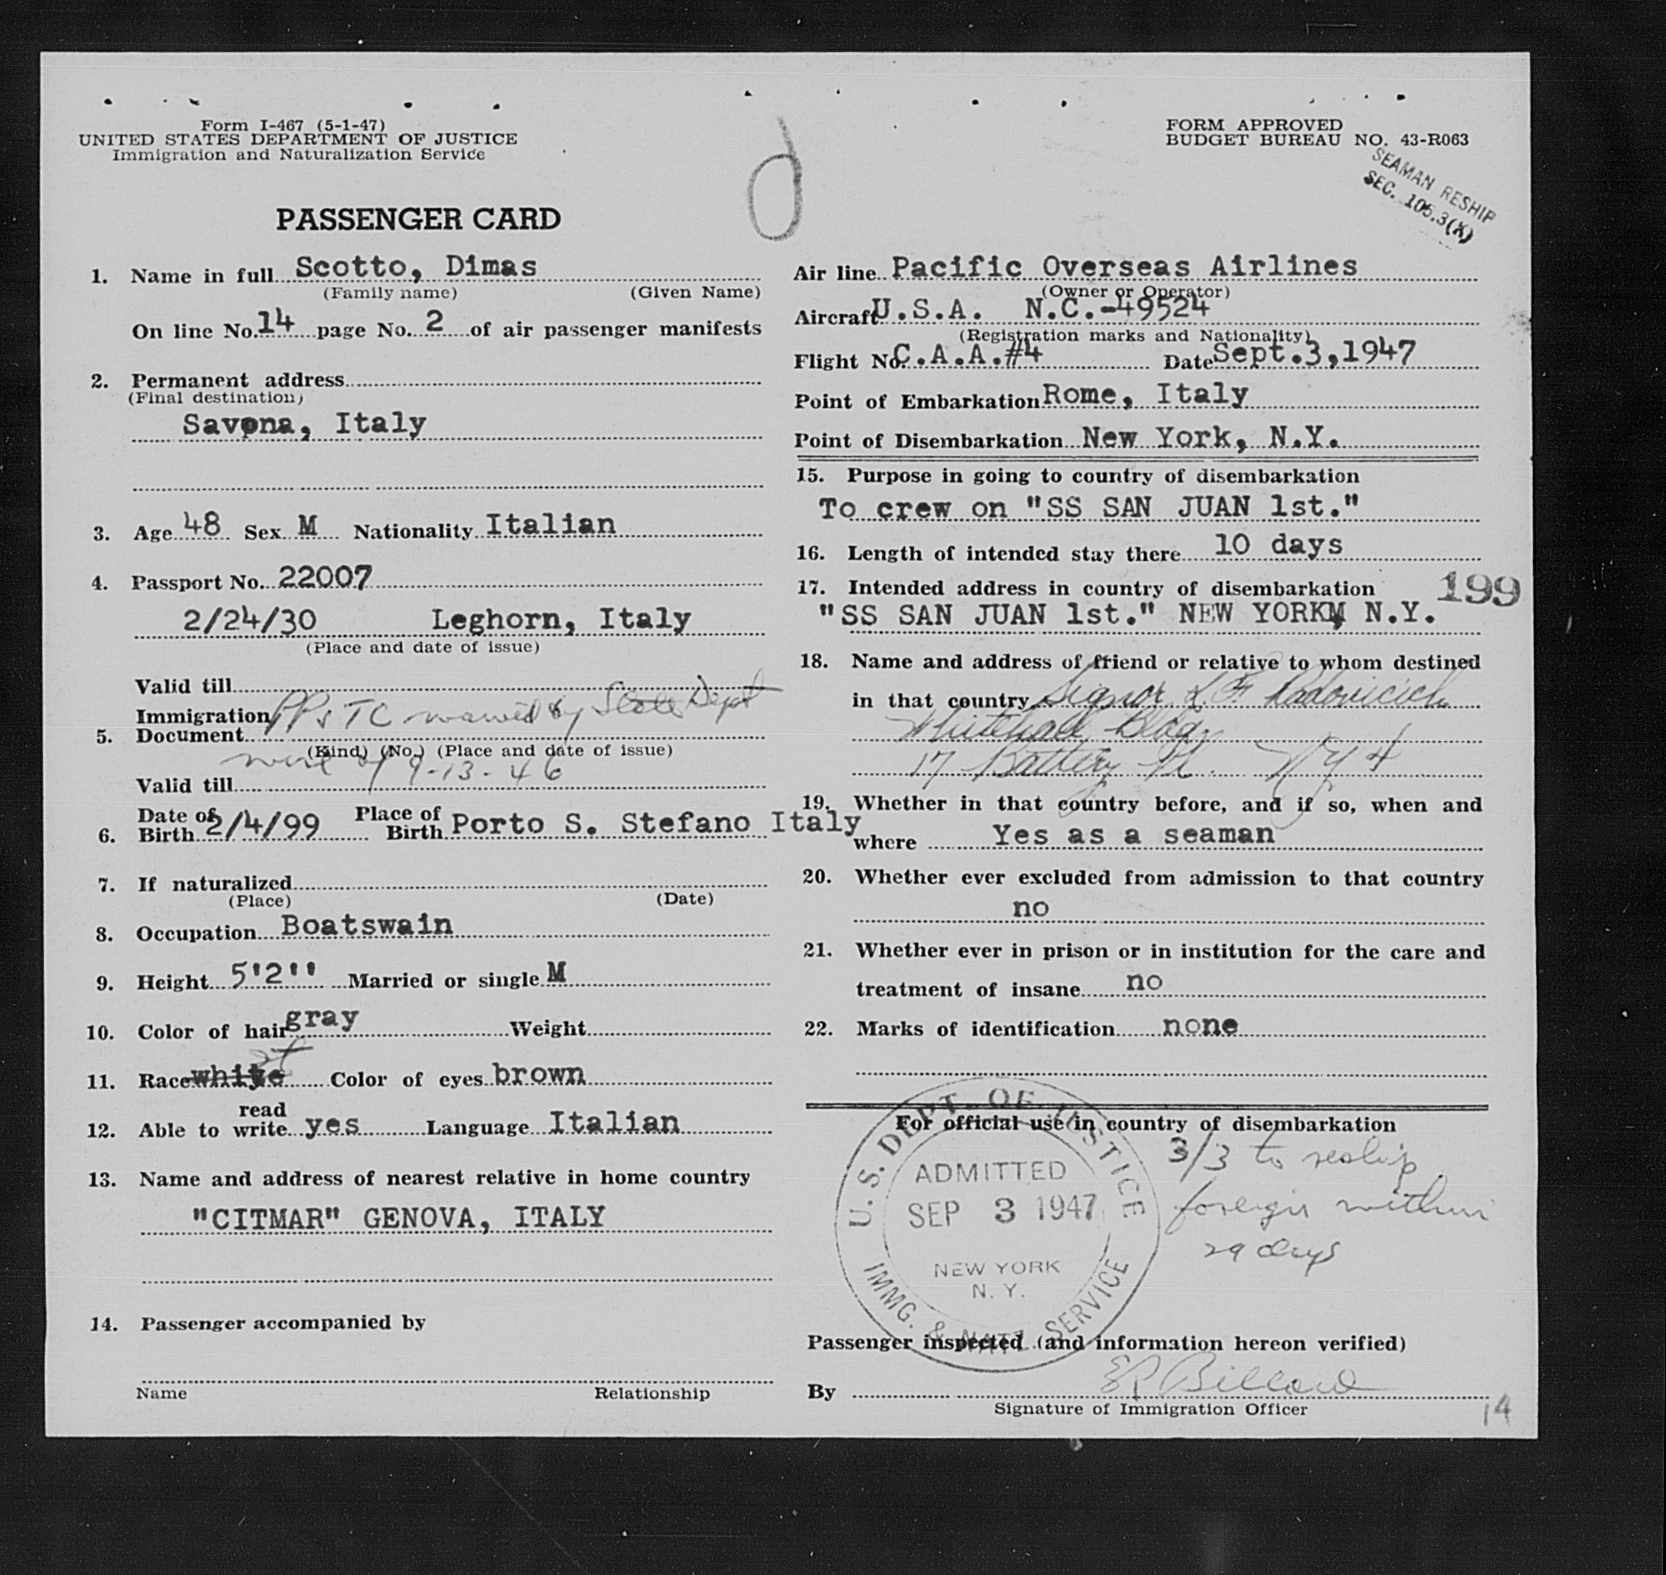 Form I-467 (5-1-47)
UNITED STATES DEPARTMENT OF JUSTICE
Immigration and Naturalization Service
FORM APPROVED
BUDGET BUREAU NO. 43-R063
SEAMAN RESHIP
SEC. 105.3(K)
PASSENGER CARD
1. Name in full Scotto, Dimas
(Family name) (Given Name)
On line No. 14 page No. 2 of air passenger manifests
2. Permanent address
(Final destination)
Savona, Italy
3. Age 48 Sex M Nationality Italian
4. Passport No. 22007
2/24/30 Leghorn, Italy
(Place and date of issue)
Valid till
5. Immigration Document PP & TC waived by State Dept
(Kind) (No.) (Place and date of issue)
wire of 9-13-46
Valid till
6. Date of Birth 2/4/99 Place of Birth Porto S. Stefano Italy
7. If naturalized
(Place) (Date)
8. Occupation Boatswain
9. Height 5'2'' Married or single M
10. Color of hair gray Weight
11. Race white Color of eyes brown
12. Able to read write yes Language Italian
13. Name and address of nearest relative in home country
"CITMAR" GENOVA, ITALY
14. Passenger accompanied by
Name Relationship
Air line Pacific Overseas Airlines
(Owner or Operator)
Aircraft U.S.A. N.C.-49524
(Registration marks and Nationality)
Flight No. C.A.A.#4 Date Sept.3,1947
Point of Embarkation Rome, Italy
Point of Disembarkation New York, N.Y.
15. Purpose in going to country of disembarkation
To crew on "SS SAN JUAN 1st."
16. Length of intended stay there 10 days
17. Intended address in country of disembarkation 199
"SS SAN JUAN 1st." NEW YORK, N.Y.
18. Name and address of friend or relative to whom destined
in that country Signor L. F. Radovicich
Whitehall Bldg
17 Battery Pl. N Y 4
19. Whether in that country before, and if so, when and
where Yes as a seaman
20. Whether ever excluded from admission to that country
no
21. Whether ever in prison or in institution for the care and
treatment of insane no
22. Marks of identification none
For official use in country of disembarkation
3/3 to reship
foreign within
29 days
U.S. DEPT. OF JUSTICE
ADMITTED
SEP 3 1947
NEW YORK
N.Y.
IMMG. & NATZ. SERVICE
Passenger inspected (and information hereon verified)
By
Signature of Immigration Officer
14